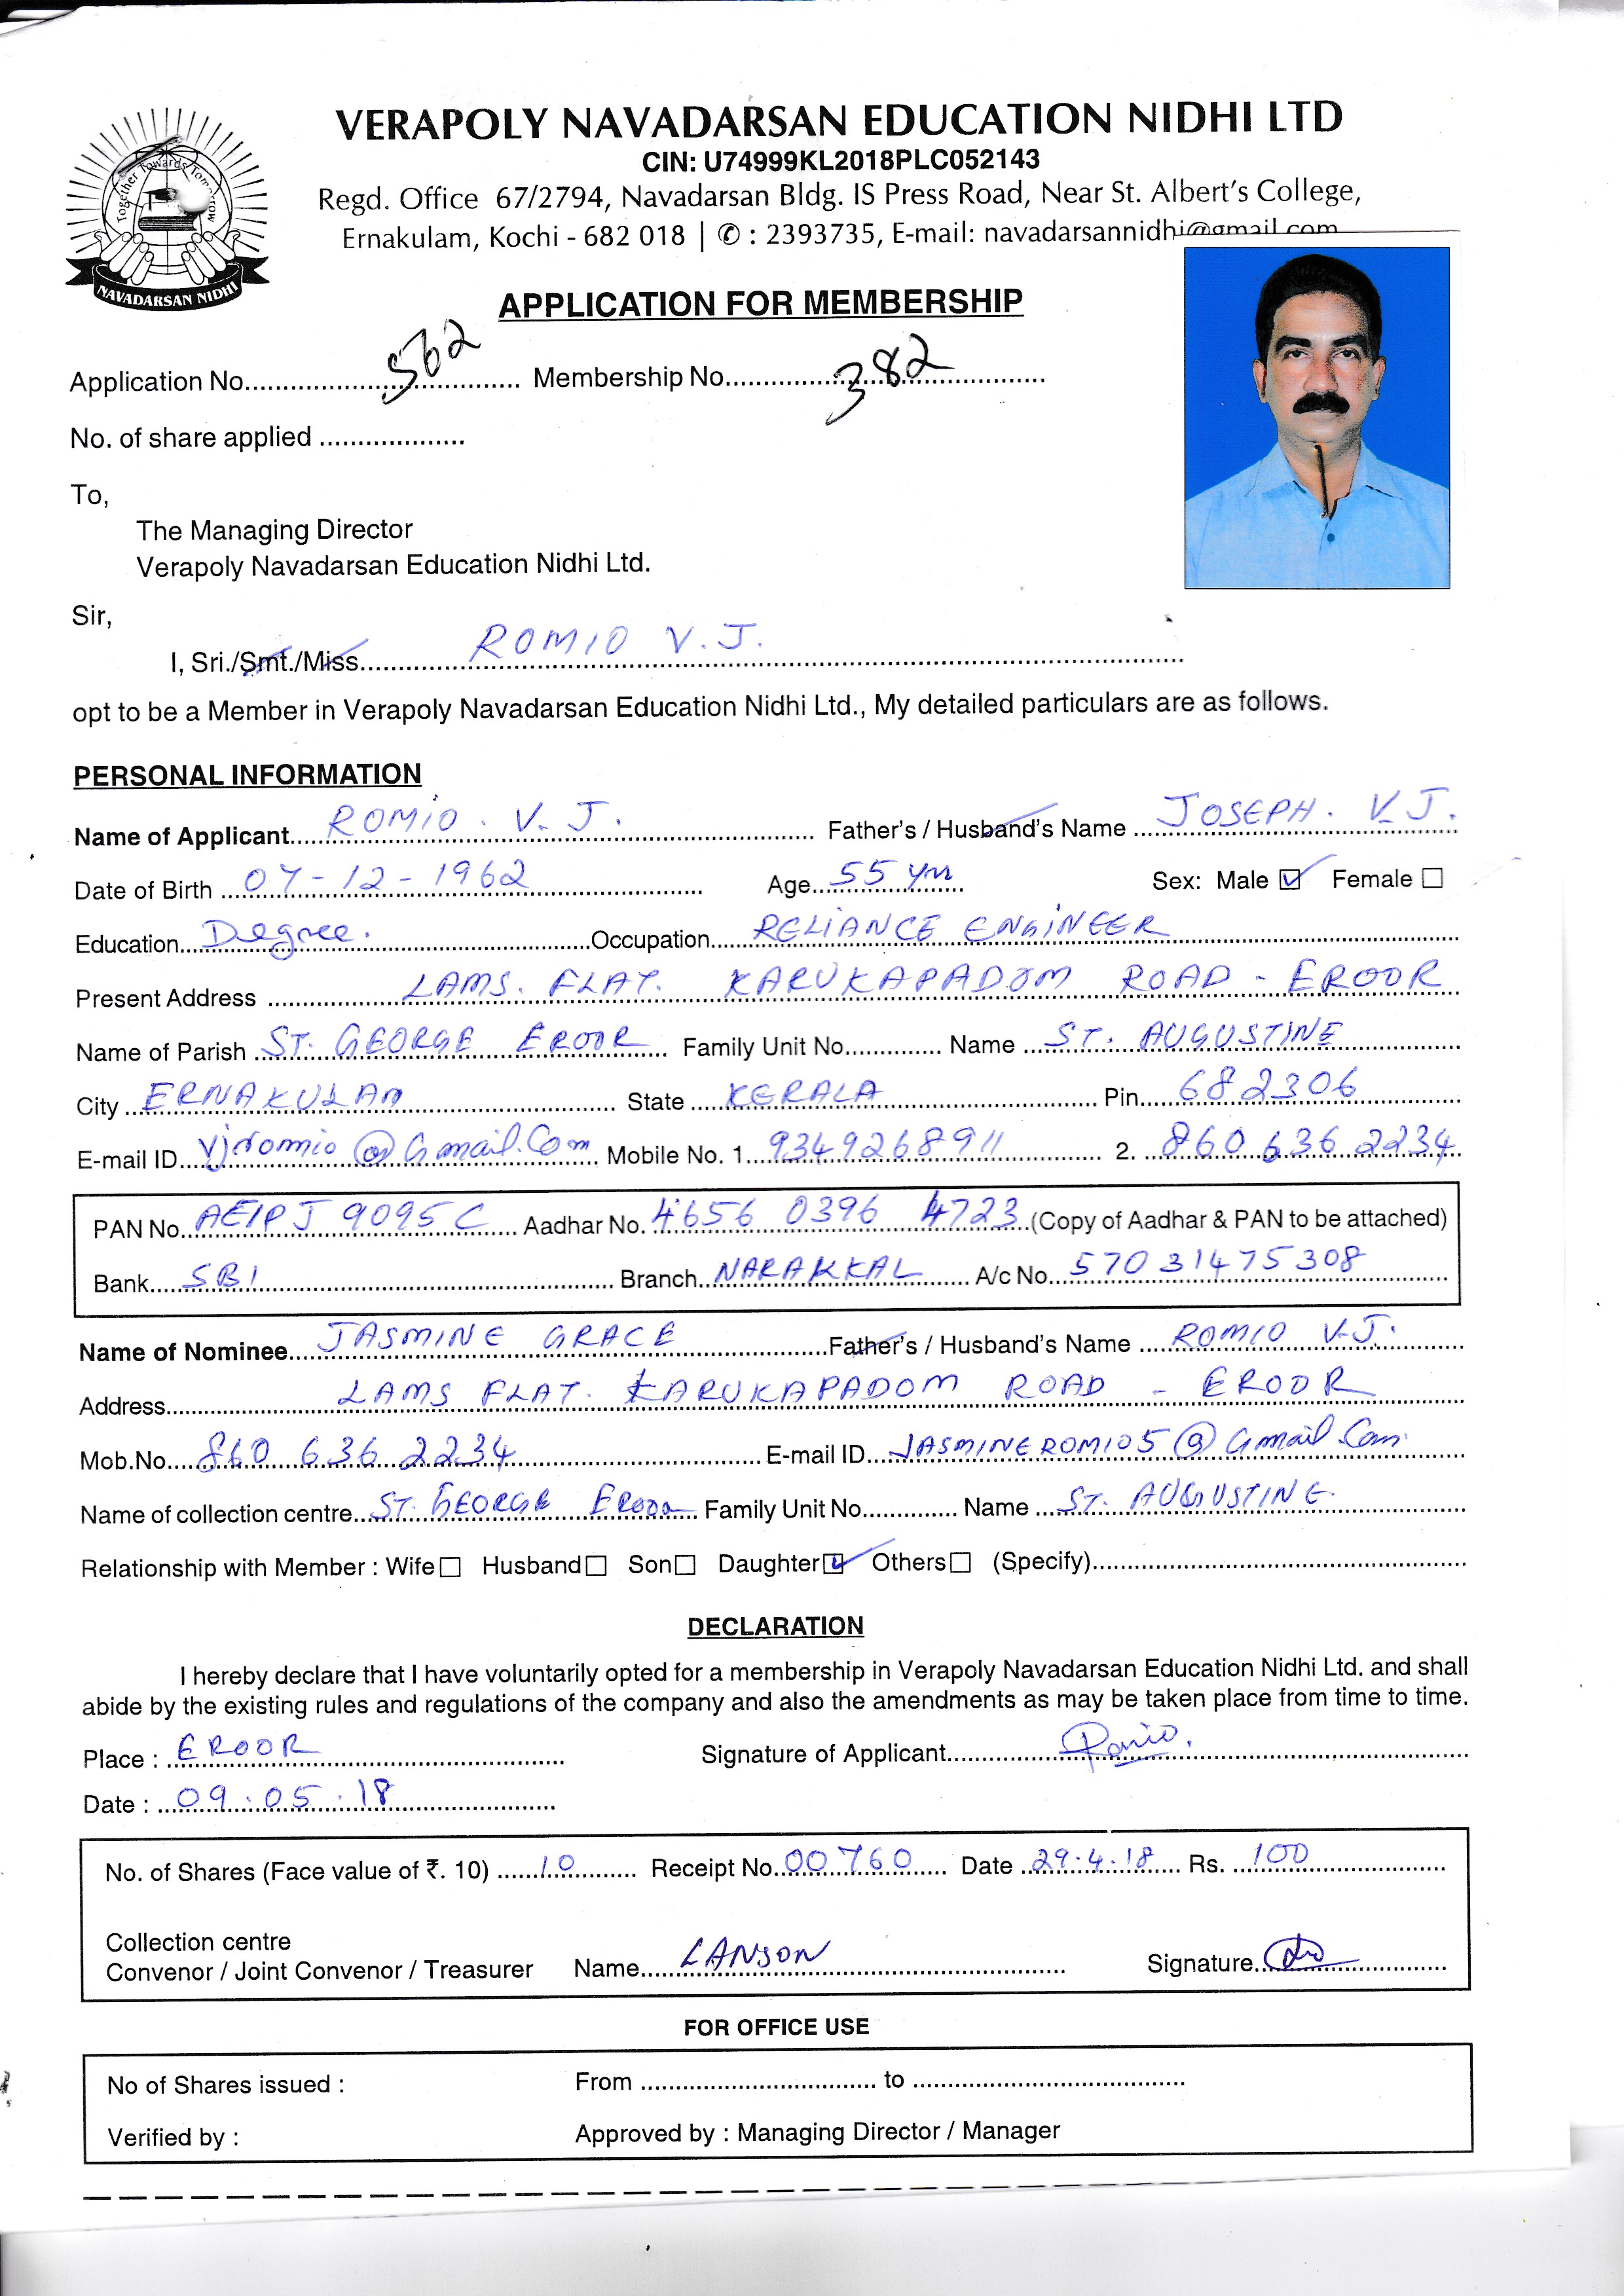 VERAPOLY NAVADARSAN EDUCATION NIDHI LTD
CIN: U74999KL2018PLC052143
Regd. Office 67/2794, Navadarsan Bldg. IS Press Road, Near St. Albert's College,
Ernakulam, Kochi - 682 018 | ✆ : 2393735, E-mail: navadarsannidhi@gmail.com
Together Towards Tomorrow
NAVADARSAN NIDHI
APPLICATION FOR MEMBERSHIP
Application No. 562 Membership No. 382
No. of share applied
To,
The Managing Director
Verapoly Navadarsan Education Nidhi Ltd.
Sir,
I, Sri./Smt./Miss. ROMIO V.J.
opt to be a Member in Verapoly Navadarsan Education Nidhi Ltd., My detailed particulars are as follows.
PERSONAL INFORMATION
Name of Applicant. ROMIO. V.J. Father's / Husband's Name JOSEPH. V.J.
Date of Birth 07-12-1962 Age. 55 yrs Sex: Male ☑ Female ☐
Education. Degree. Occupation. RELIANCE ENGINEER
Present Address LAMS. FLAT. KARUKAPADOM ROAD - EROOR
Name of Parish ST. GEORGE EROOR Family Unit No. Name ST. AUGUSTINE
City ERNAKULAM State KERALA Pin. 682306
E-mail ID. vjromio@Gmail.Com Mobile No. 1. 9349268911 2. 860 636 2234
PAN No. AEIPJ9095C Aadhar No. 4656 0396 4723 (Copy of Aadhar & PAN to be attached)
Bank. SBI Branch. NARAKKAL A/c No. 57031475308
Name of Nominee. JASMINE GRACE Father's / Husband's Name ROMIO V.J.
Address. LAMS FLAT. KARUKAPADOM ROAD - EROOR
Mob.No. 860 636 2234 E-mail ID. JASMINEROMIO5@Gmail.Com
Name of collection centre. ST. GEORGE EROOR Family Unit No. Name ST. AUGUSTINE
Relationship with Member : Wife ☐ Husband ☐ Son ☐ Daughter ☑ Others ☐ (Specify)
DECLARATION
I hereby declare that I have voluntarily opted for a membership in Verapoly Navadarsan Education Nidhi Ltd. and shall
abide by the existing rules and regulations of the company and also the amendments as may be taken place from time to time.
Place : EROOR Signature of Applicant. Romio.
Date : 09.05.18
No. of Shares (Face value of ₹. 10) 10 Receipt No. 00760 Date 29.4.18 Rs. 100
Collection centre
Convenor / Joint Convenor / Treasurer Name. LANSON Signature.
FOR OFFICE USE
No of Shares issued : From to
Verified by : Approved by : Managing Director / Manager